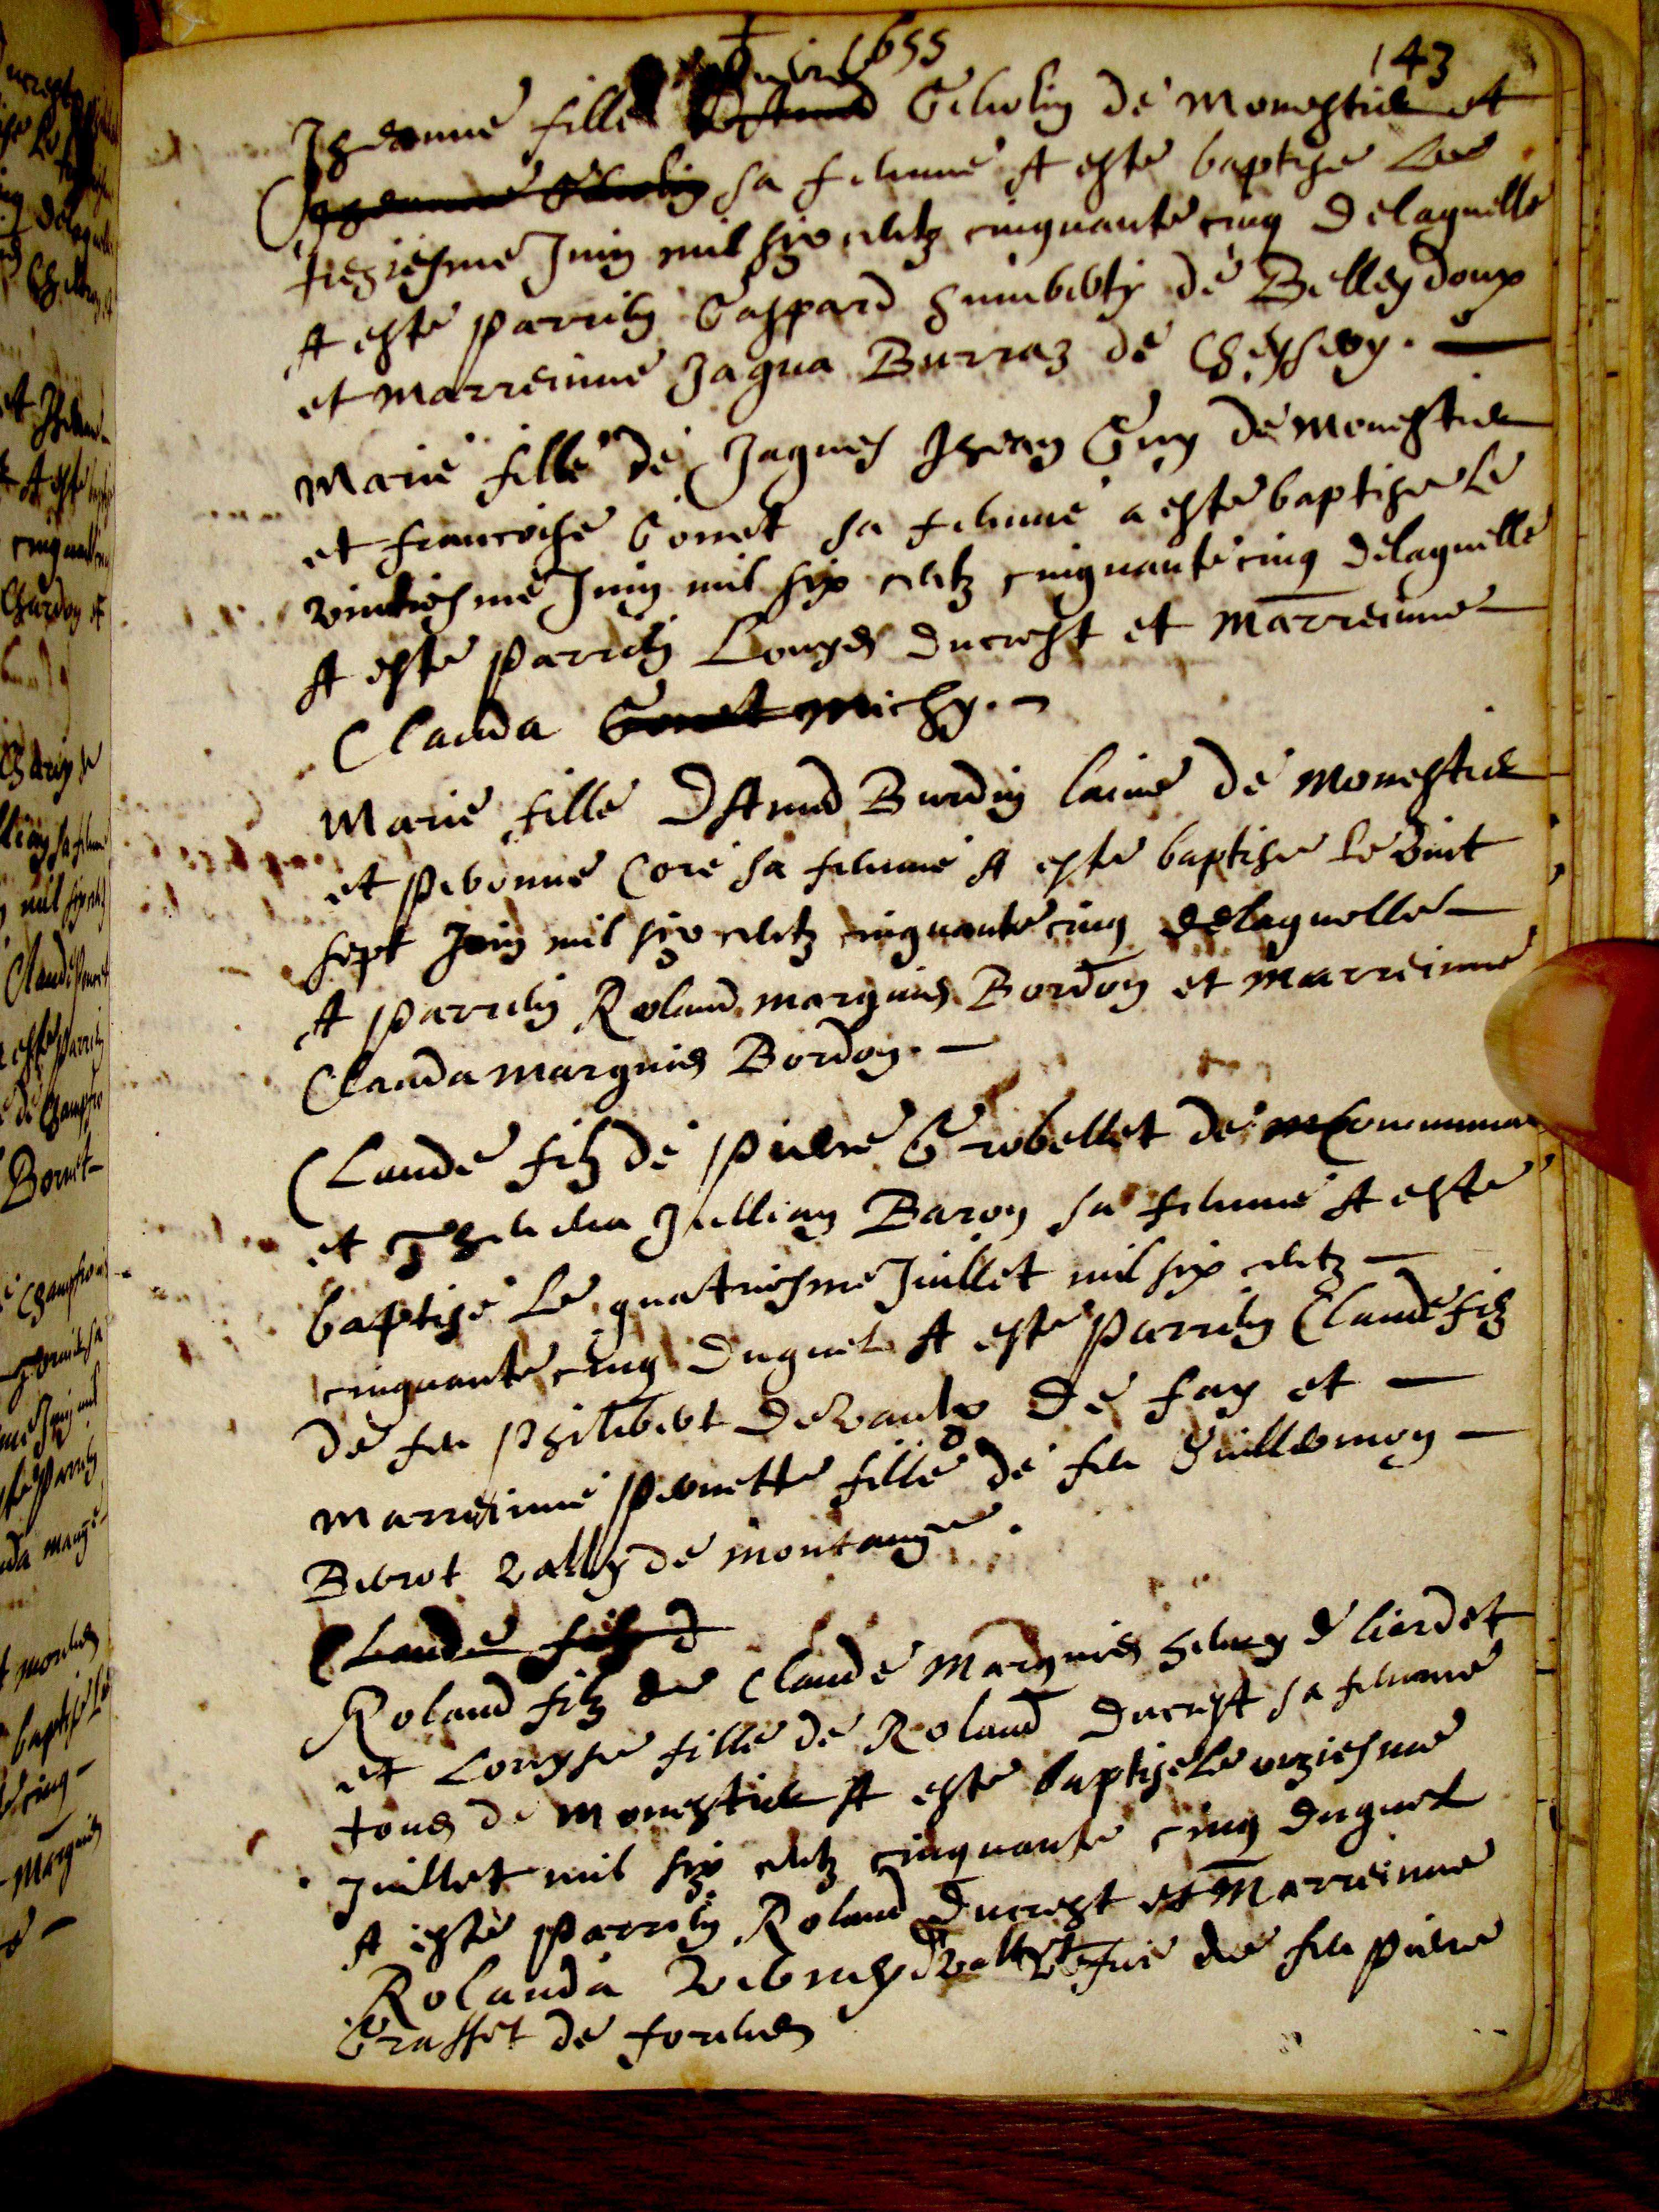 1655
143
Jheanne fille Gilvetin de Monestier et
sa femme A este baptisee le
treziesme Juin mil six centz cinquante cinq Delaquelle
A este parrein Gaspard humberty de Belleydoux
et marreinne Jaqua Burraz de Cheysery.
Marie fille de Jaques Jhean Guy de Monestier
et francoise Gonet sa femme a este baptisee le
vintiesme Juin mil six centz cinquante cinq Delaquelle
A este parrein Louys Ducrest et Marreinne
Clauda Gonet Michy.
Marie fille Burdin laine de Monestier
et Pernonne Core sa femme A este baptisee le vint
sept Juin mil six centz cinquante cinq delaquelle
A parrein Roland marquis Bordon et marreinne
Clauda marquis Bordon.
Claude filz de Pierre Grobellet de Communal
et Jullian Baron sa femme A este
baptise le quatriesme Juillet mil six centz
cinquante cinq Duquel A este Parrein Claude filz
de feu Philibert Devaulx De fay et
marreinne Pernette fille de feu Guillermoz
Berrot vally de montange.
Claude filz d
Roland filz de Claude Marquis de liardet
et Louyse fille de Roland Ducrest sa femme
tous de Monestier A este baptise le onziesme
Juillet mil six centz cinquante cinq Duquel
A este Parrein Roland Ducrest et Marreinne
Rolanda de feu pierre
Grasset de forens